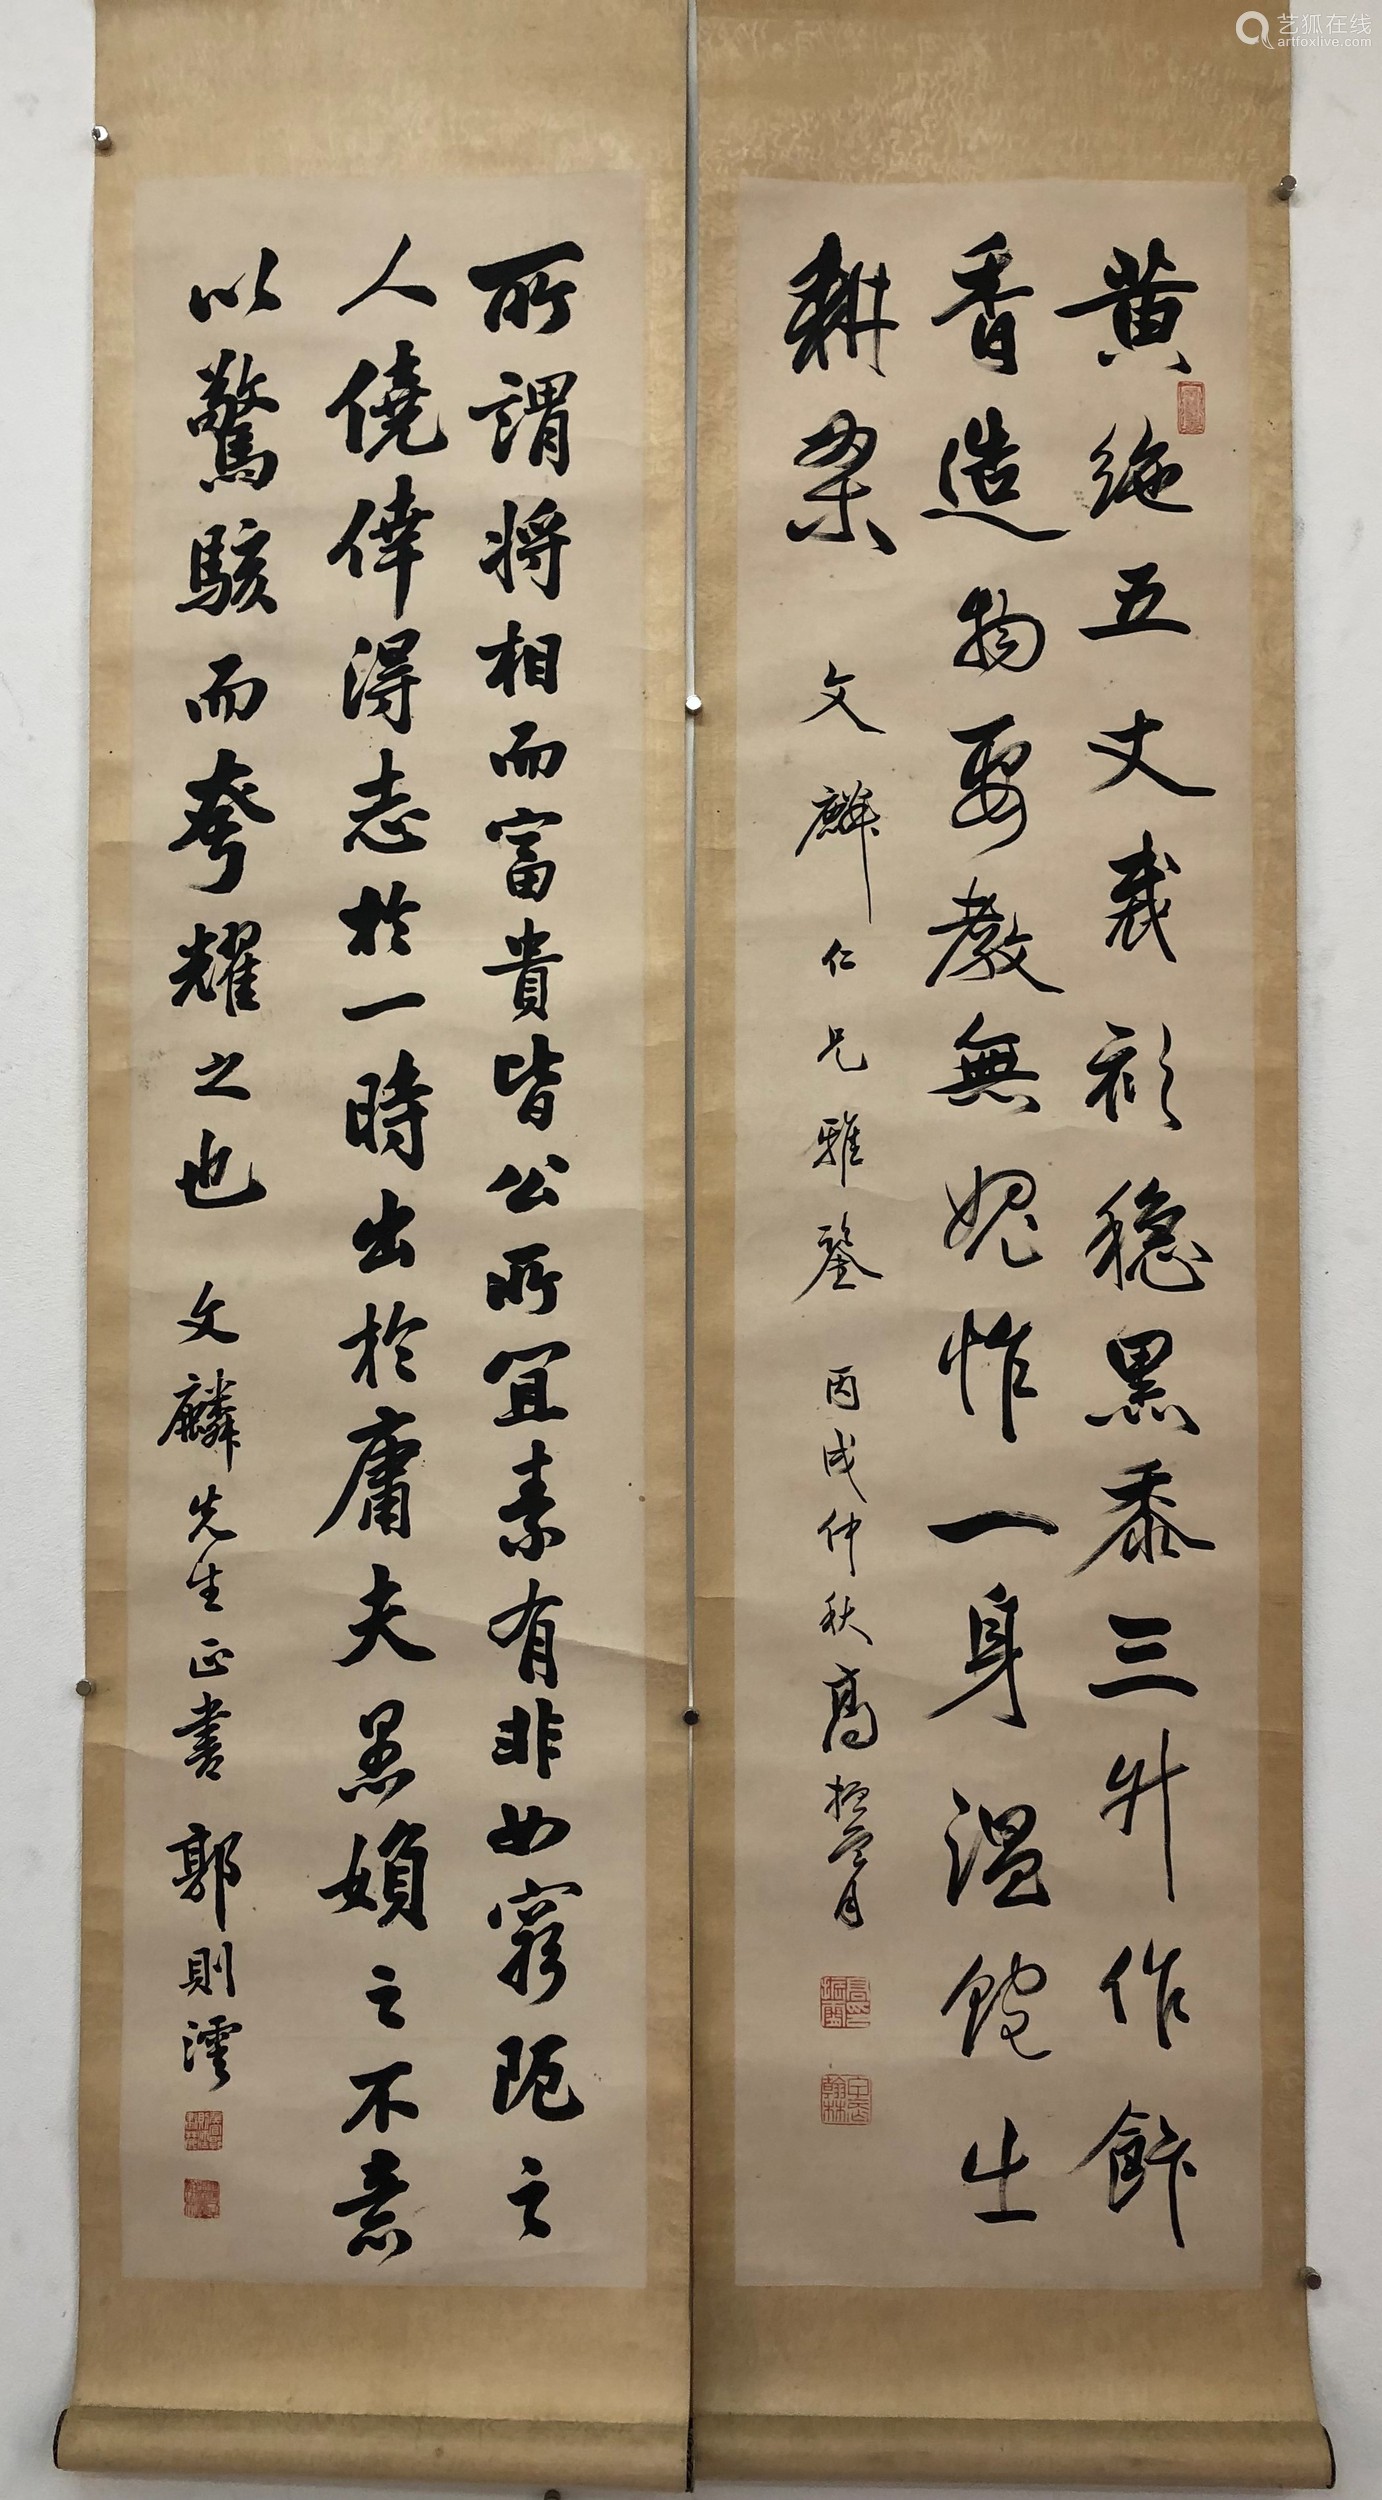 黄絁五丈裁衫穩黑黍三升作飰
香造物要教無媿怍一身溫飽生
耕桑
文麟仁兄雅鑒
丙戌仲秋高振霄
所謂將相而富貴皆公所宜素有非如窮阨之
人僥倖得志於一時出於庸夫愚婦之不意
以驚駭而夸耀之也
文麟先生正書
郭則澐
艺狐在线
artfoxlive.com